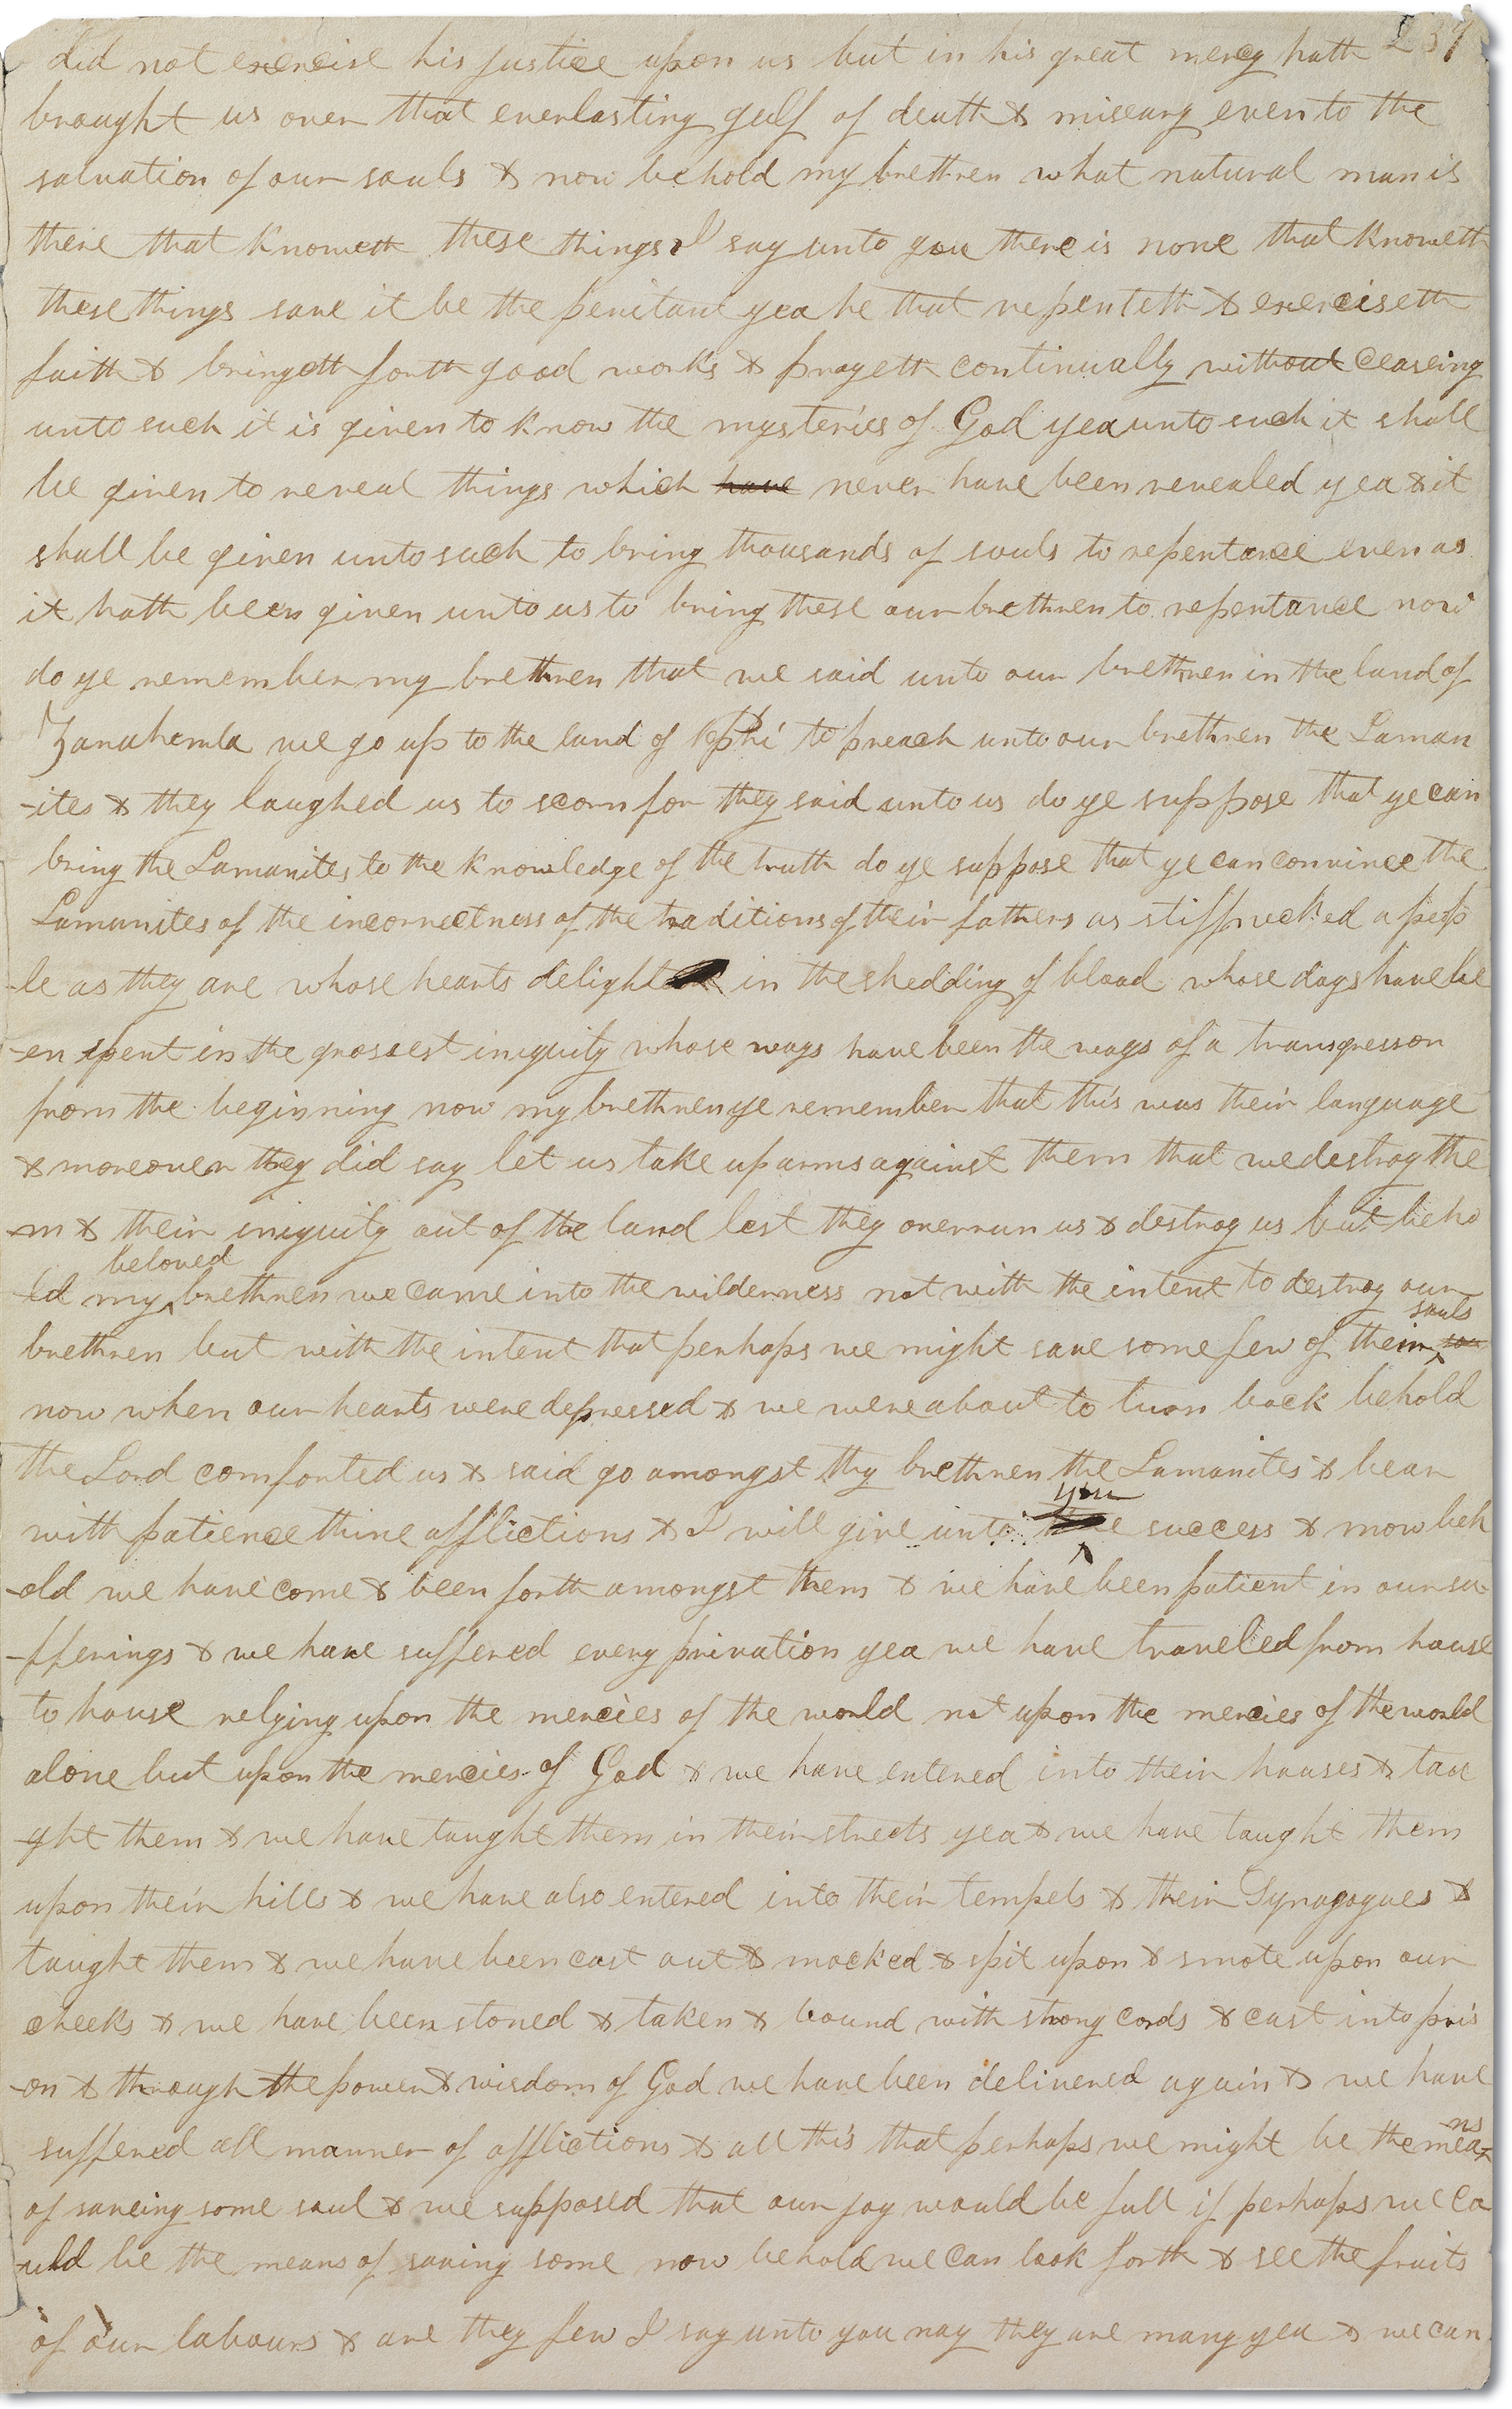 237
did not exercise his justice upon us but in his great mercy hath
brought us over that everlasting gulf of death & miseary even to the
salvation of our souls & now behold my brethren what natural man is
there that knoweth these things I say unto you there is none that knoweth
these things save it be the penitant yea he that repenteth & exerciseth
faith & bringeth forth good works & prayeth continually without ceaseing
unto such it is given to know the mysteries of God yea unto such it shall
be given to reveal things which have never have been revealed yea & it
shall be given unto such to bring thousands of souls to repentance even as
it hath been given unto us to bring these our brethren to repentance now
do ye remember my brethren that we said unto our brethren in the land of
Zarahemla we go up to the land of Nephi to preach unto our brethren the Laman
-ites & they laughed us to scorn for they said unto us do ye suppose that ye can
bring the Lamanites to the knowledge of the truth do ye suppose that ye can convince the
Lamanites of the incorrectness of the traditions of their fathers as stiffnecked a peop
-le as they are whose hearts delight in the shedding of blood whose days have be
-en spent in the grossest iniquity whose ways have been the ways of a transgressor
from the beginning now my brethren ye remember that this was their language
& moreover they did say let us take up arms against them that we destroy the
-m & their iniquity out of the land lest they overrun us & destroy us but beho
beloved
-ld my brethren we came into the wilderness not with the intent to destroy our
souls
brethren but with the intent that perhaps we might save some few of their sou
now when our hearts were depressed & we were about to turn back behold
the Lord comforted us & said go amongst thy brethren the Lamanites & bear
you
with patience thine afflictions & I will give unto success & now beh
-old we have come & been forth amongst them & we have been patient in our su
-fferings & we have suffered every privation yea we have traveled from house
to house relying upon the mercies of the world not upon the mercies of the world
alone but upon the mercies of God & we have entered into their houses & tau
-ght them & we have taught them in their streets yea & we have taught them
upon their hills & we have also entered into their tempels & their Synagogues &
taught them & we have been cast out & mocked & spit upon & smote upon our
cheeks & we have been stoned & taken & bound with strong cords & cast into pris
-on & through the power & wisdom of God we have been delivered again & we have
suffered all manner of afflictions & all this that perhaps we might be the means
of saveing some soul & we supposed that our joy would be full if perhaps we co
uld be the means of saving some now behold we can look forth & see the fruits
of our labours & are they few I say unto you nay they are many yea & we can